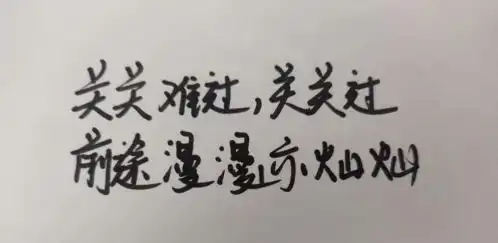 关关难过,关关过
前途漫漫亦灿灿